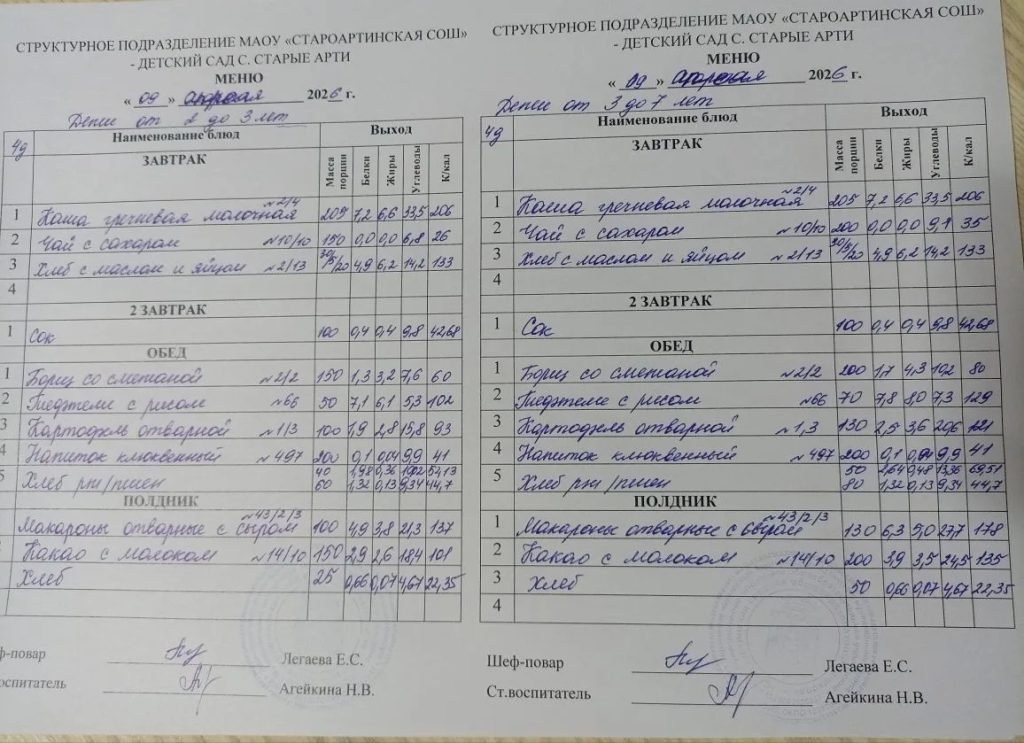 СТРУКТУРНОЕ ПОДРАЗДЕЛЕНИЕ МАОУ «СТАРОАРТИНСКАЯ СОШ»
- ДЕТСКИЙ САД С. СТАРЫЕ АРТИ
МЕНЮ
« 09 » апреля 2026 г.
Дети от 2 до 3 лет
4д Наименование блюд Выход
ЗАВТРАК Масса порции Белки Жиры Углеводы К/кал
1 Каша гречневая молочная №2/4 205 7,2 6,6 33,5 206
2 Чай с сахаром №10/10 150 0,0 0,0 6,8 26
3 Хлеб с маслом и яйцом №2/13 30/5/20 4,9 6,2 14,2 133
4
2 ЗАВТРАК
1 Сок 100 0,4 0,4 9,8 42,68
ОБЕД
1 Борщ со сметаной №2/2 150 1,3 3,2 7,6 60
2 Тефтели с рисом №66 50 7,1 6,1 5,3 102
3 Картофель отварной №1/3 100 1,9 2,8 15,8 93
4 Напиток клюквенный №497 200 0,1 0,04 9,9 41
5 Хлеб рж/пшен 40 1,98 0,36 10,02 52,13
60 1,32 0,13 9,34 44,7
ПОЛДНИК
Макароны отварные с сыром №43/2/3 100 4,9 3,8 21,3 137
Какао с молоком №14/10 150 2,9 2,6 18,4 101
Хлеб 25 0,66 0,07 4,67 22,35
ф-повар Легаева Е.С.
воспитатель Агейкина Н.В.
СТРУКТУРНОЕ ПОДРАЗДЕЛЕНИЕ МАОУ «СТАРОАРТИНСКАЯ СОШ»
- ДЕТСКИЙ САД С. СТАРЫЕ АРТИ
МЕНЮ
« 09 » апреля 2026 г.
Дети от 3 до 7 лет
4д Наименование блюд Выход
ЗАВТРАК Масса порции Белки Жиры Углеводы К/кал
1 Каша гречневая молочная №2/4 205 7,2 6,6 33,5 206
2 Чай с сахаром №10/10 200 0,0 0,0 9,1 35
3 Хлеб с маслом и яйцом №2/13 30/5/20 4,9 6,2 14,2 133
4
2 ЗАВТРАК
1 Сок 100 0,4 0,4 9,8 42,68
ОБЕД
1 Борщ со сметаной №2/2 200 1,7 4,3 10,2 80
2 Тефтели с рисом №66 70 7,8 8,0 7,3 129
3 Картофель отварной №1,3 130 2,5 3,6 20,6 121
4 Напиток клюквенный №497 200 0,1 0,04 9,9 41
5 Хлеб рж/пшен 50 2,64 0,48 13,36 69,51
80 1,32 0,13 9,34 44,7
ПОЛДНИК
1 Макароны отварные с сыром №43/2/3 130 6,3 5,0 27,7 178
2 Какао с молоком №14/10 200 3,9 3,5 24,5 135
3 Хлеб 50 0,66 0,07 4,67 22,35
4
Шеф-повар Легаева Е.С.
Ст.воспитатель Агейкина Н.В.